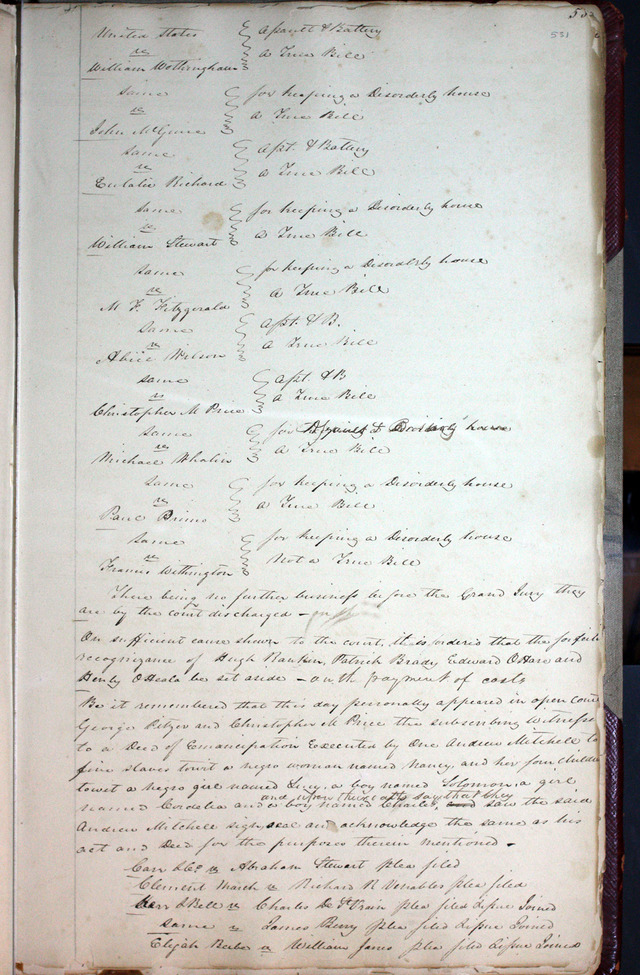 531
United States
vs
William Wottingham
Assault & Battery
a True Bill
same
vs
John McGuire
for keeping a Disorderly house
a True Bill
same
vs
Eulalie Richard
Asst. & Battery
a True Bill
same
vs
William Stewart
for keeping a Disorderly house
a True Bill
same
vs
M F. Fitzgerald
for keeping a Disorderly house
a True Bill
same
vs
Alice Wilson
Asst. & B.
a True Bill
same
vs
Christopher M Price
Asst. & B
a True Bill
same
vs
Michael Whalin
for house
a True Bill
same
vs
Paul Primo
for keeping a Disorderly house
a True Bill
same
vs
Francis Withington
for keeping a Disorderly house
Not a True Bill
There being no further business before the Grand Jury they
are by the court discharged -
On sufficient cause shown to the court, it is ordered that the forfeit
recognizance of Hugh Rankin, Patrick Brady Edward OHare and
Henry OHeala be set aside - on the payment of costs
Be it remembered that this day personally appeared in open Cour
George Pitzer and Christopher M Price the subscribing witness
to a Deed of Emancipation Executed by One Andrew Mitchell to
five slaves towit a negro woman named Nancy, and her four children
towit a negro girl named Lucy, a boy named Solomon, a girl
and upon their oath say that they
named Cordelia and a boy named Charles saw the said
Andrew Mitchell sign, seal and acknowledge the same as his
act and Deed for the purposes therein mentioned -
Carr & Co vs Abraham Stewart plea filed
Clement March vs Richard R Venables plea filed
Carr & Bell vs Charles De St Vrain plea filed & issue Joined
same vs James Berry plea filed & issue Joined
Elijah Beebe vs William James plea filed & issue Joined